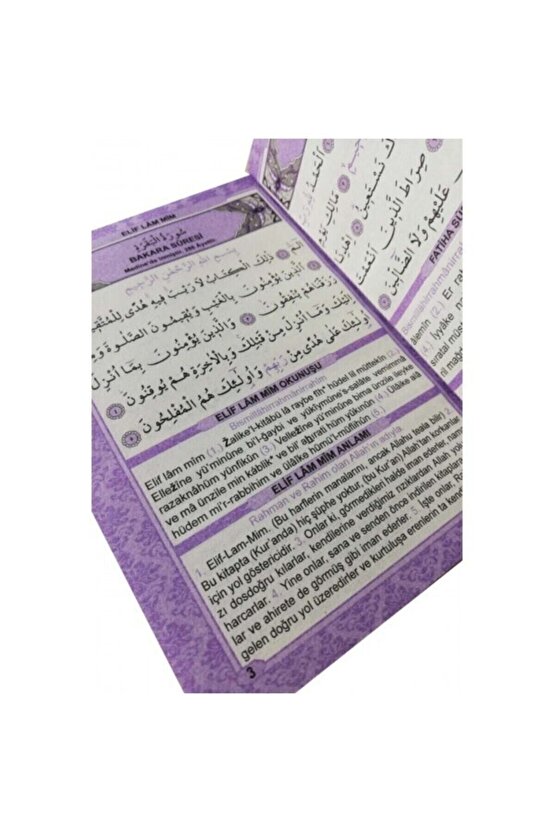 ELİF LÂM MÎM
سُورَةُ الْبَقَرَةِ
BAKARA SÛRESİ
بِسْمِ اللّٰهِ الرَّحْمٰنِ الرَّحِيمِ
الٓمٓ ذٰلِكَ الْكِتَابُ لَا رَيْبَ فِيهِ هُدًى لِلْمُتَّقِينَ
الَّذِينَ يُؤْمِنُونَ بِالْغَيْبِ وَيُقِيمُونَ الصَّلٰوةَ
رَزَقْنَاهُمْ يُنْفِقُونَ وَالَّذِينَ يُؤْمِنُونَ بِمَا اُنْزِلَ
اِلَيْكَ وَمَا اُنْزِلَ مِنْ قَبْلِكَ وَبِالْاٰخِرَةِ هُمْ يُوقِنُونَ
اُولٰئِكَ عَلٰى هُدًى مِنْ رَبِّهِمْ وَاُولٰئِكَ هُمُ الْمُفْلِحُونَ
ELİF LÂM MÎM OKUNUŞU
Bismillâhirrahmânirrahîm
Elif lâm mîm (1.) Zalike'l-kitâbü lâ raybe fîh* hüdel lil müttekîn (2.)
Ellezîne yü'minûne bi'l-ğaybi ve yükîymûne's-salâte ve mimmâ
razaknâhüm yünfikûn (3.) Vellezîne yü'minûne bimâ ünzile ileyke
ve mâ ünzile min kablik* ve bil' ahirati hüm yûkinûn (4.) Ülâike alâ
hüdem mi'r-rabbihim ve ülâike hümü'l-müflihûn (5.)
ELİF LÂM MÎM ANLAMI
Rahman ve Rahim olan Allah'ın adıyla
1. Elif-Lam-Mim. (Bu harflerin manalarını, ancak Allahu teala bilir) 2.
Bu kitapta (Kur'anda) hiç şüphe yoktur, (bu Kur'an) Allah'tan korkanlar
için yol göstericidir. 3. Onlar ki görmedikleri halde iman ederler,
zı dosdoğru kılarlar, kendilerine verdiğimiz rızıklardan Allah
harcarlar. 4. Yine onlar, sana ve senden önce indirilen kitaplara
lar ve ahirete de görmüş gibi iman ederler. 5. İşte onlar,
gelen doğru yol üzeredirler ve kurtuluşa erenlerin ta
3
صِرَاطَ الَّذِينَ
عَلَيْهِمْ وَلَا الضَّالِّينَ
FATİHA
Bismillâhirrahmânirrahîm